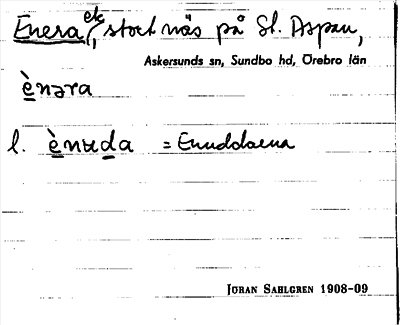 Enera etc, stort näs på St. Aspan,
Askersunds sn, Sundbo hd, Örebro län
ènəra
l. ènuda = Enuddarna
JÖRAN SAHLGREN 1908-09